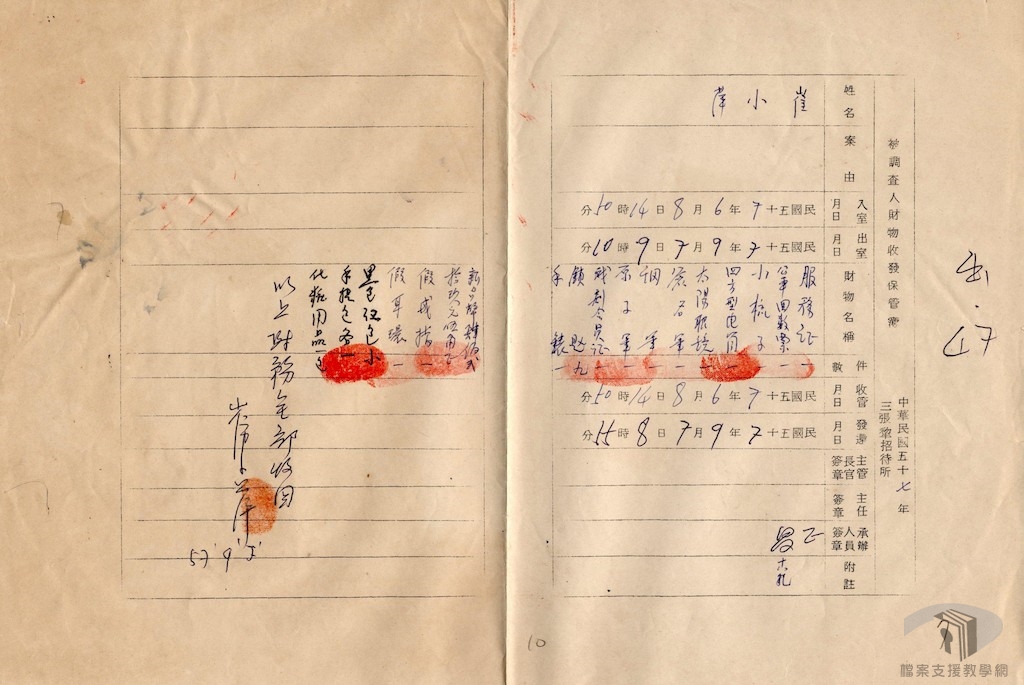 出.17
被調查人財物收發保管簿
中華民國五十七年
三張犂招待所
姓名
崔小萍
案由
入室月日
民國五十7年6月8日14時50分
出室月日
民國五十7年9月7日9時10分
財物名稱
服務証
公車回數票
小梳子
四方型化角
太陽眼鏡
簽名筆
鋼筆
原子筆
戲劇会員証
手錶
件數
一
一
一
一
一
九
一
收管月日
民國五十7年6月8日14時50分
發還月日
民國五十7年9月7日8時55分
主管長官簽章
主任簽章
承辦人員簽章
附註
新台幣
假戒指一
假耳環一
黑色紅色小
手提包各一
化粧用品一
以上財務全部收回
崔小萍
57'9'5'
10
檔案支援教學網